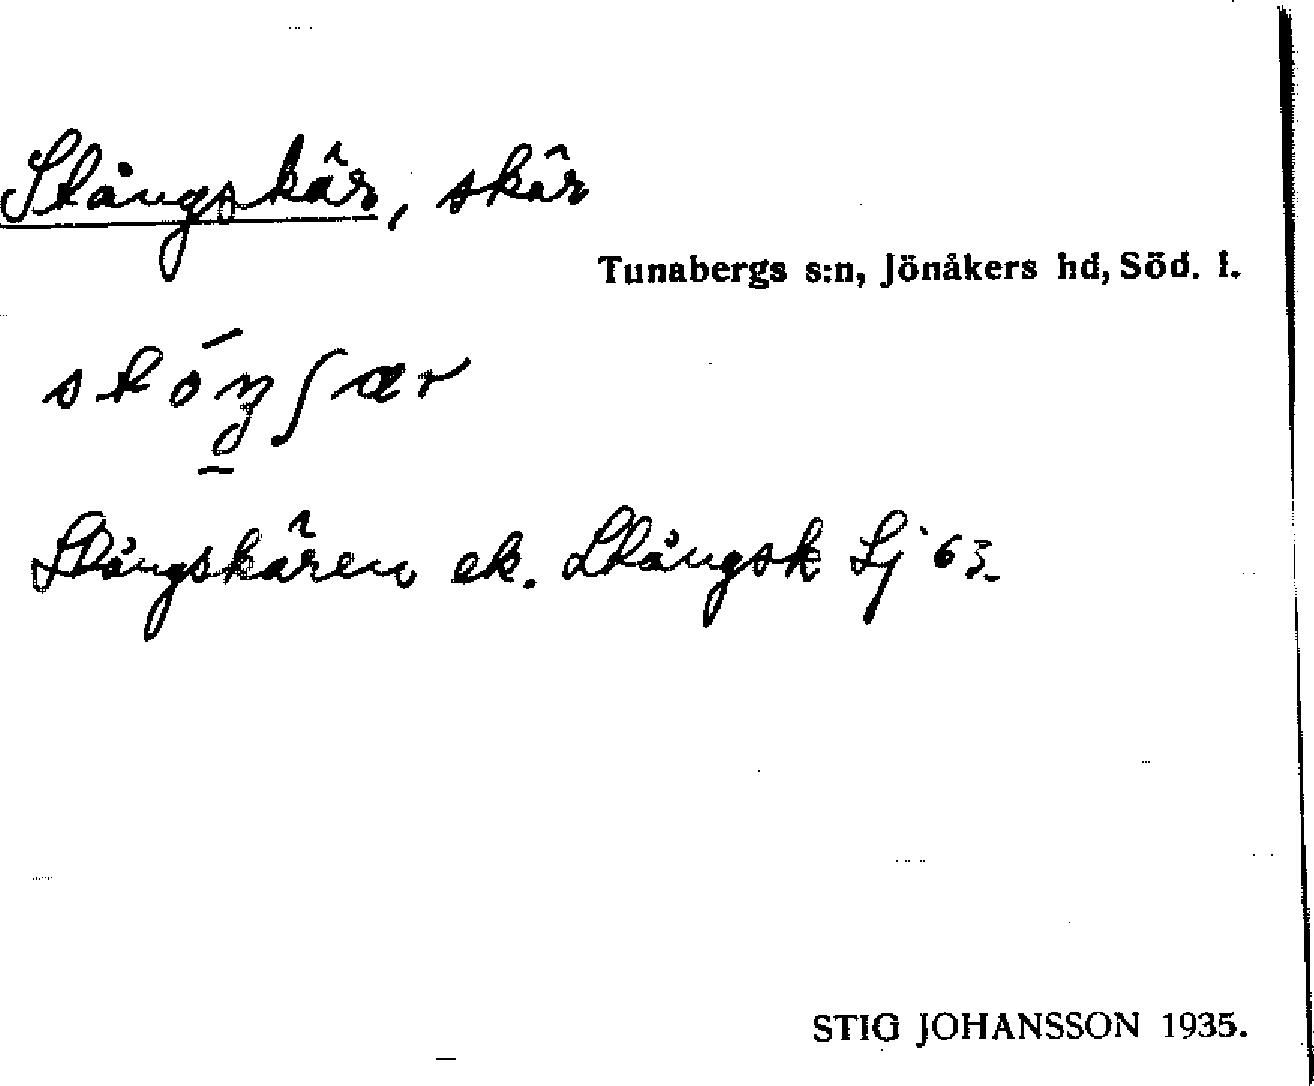 Stångskär, skär
Tunabergs s:n, Jönåkers hd, Söd. l.
Stångskären ek. Stångsk Sj 63.
STIG JOHANSSON 1935.